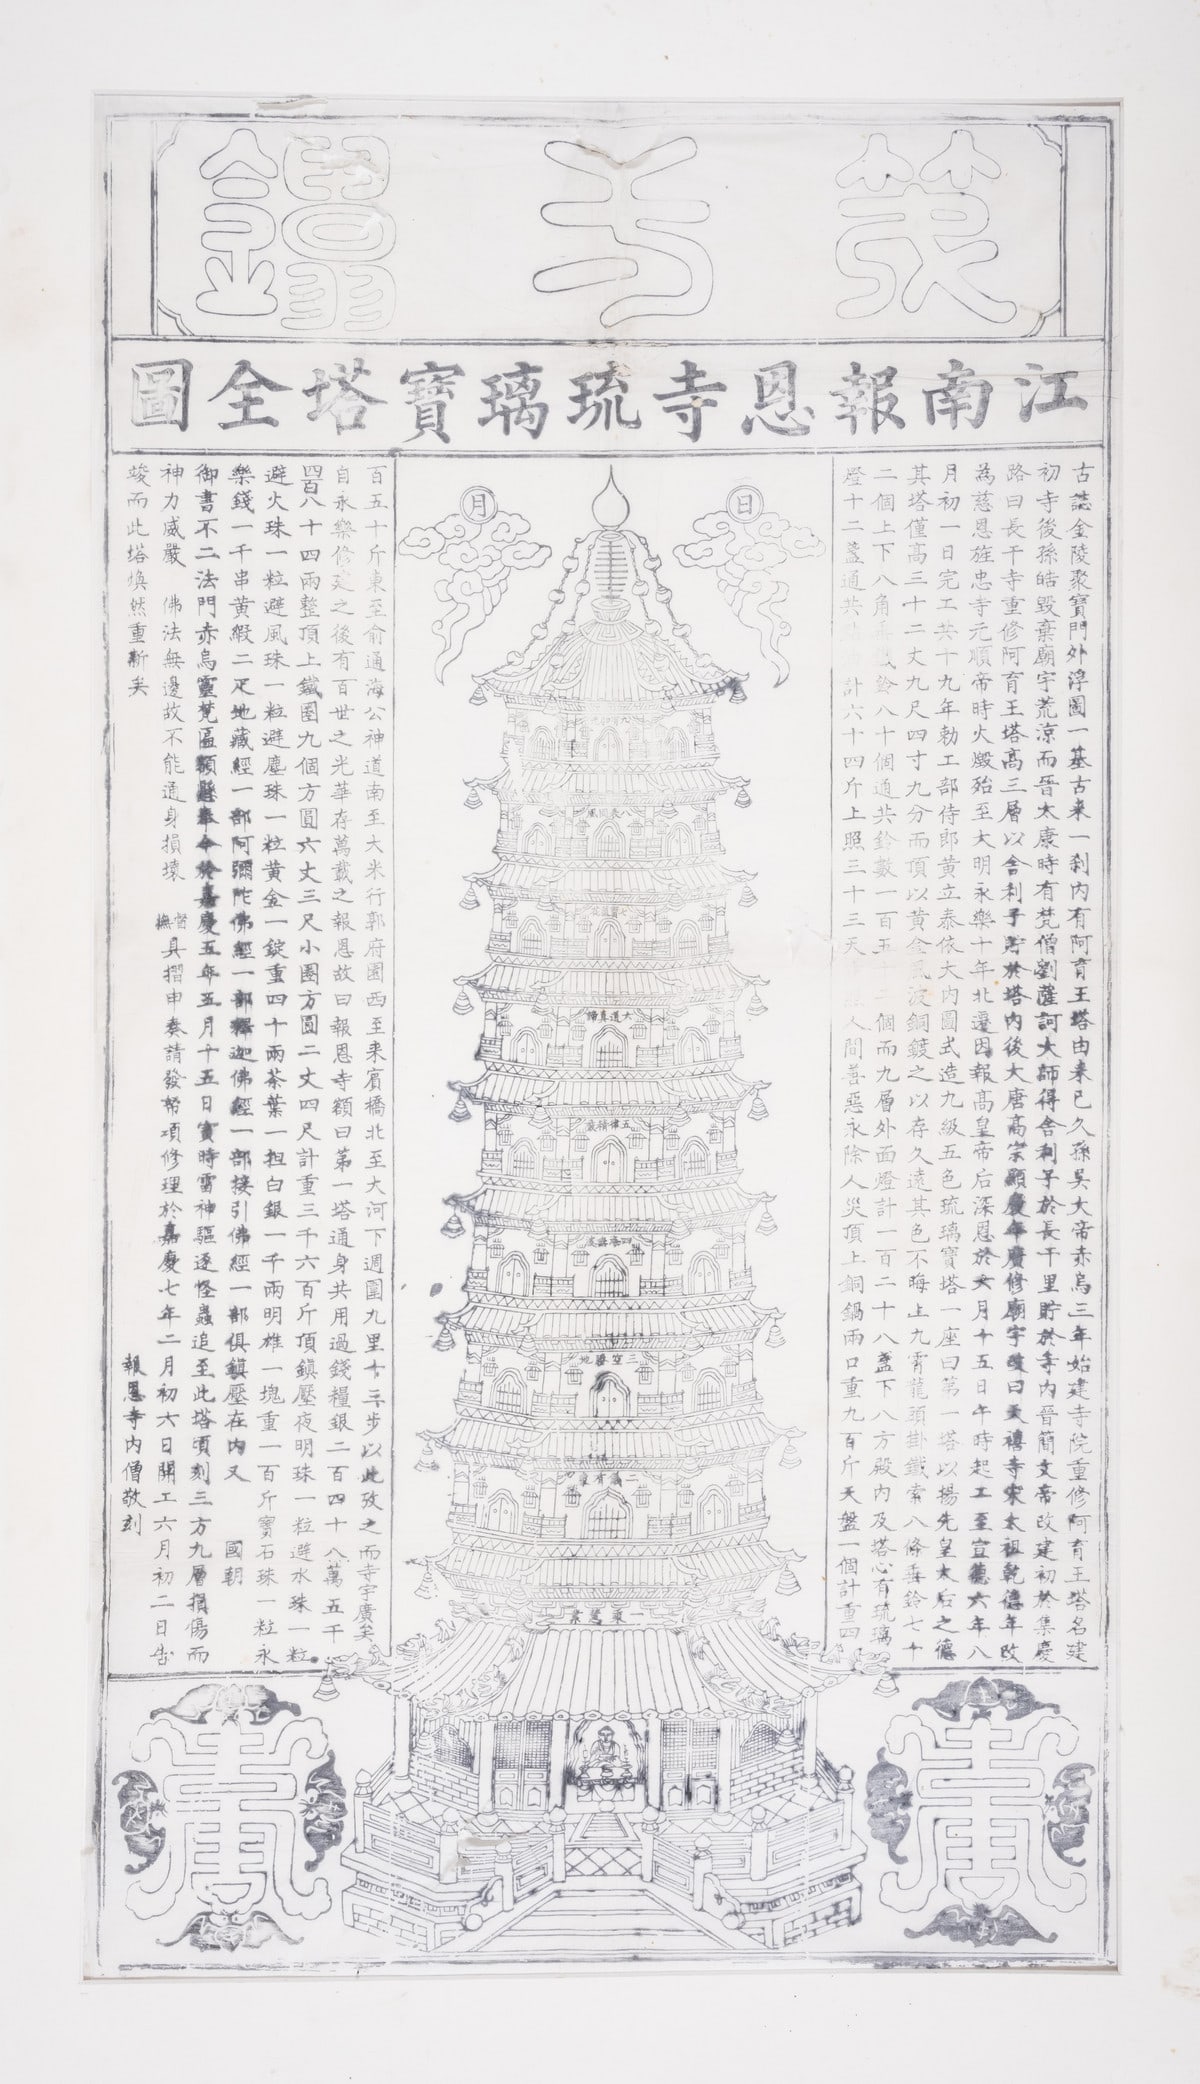 江南報恩寺琉璃寶塔全圖
日
月
古誌金陵聚寶門外浮圖一基古來一刹内有阿育王塔由來已久孫吳大帝赤烏三年始建寺院重修阿育王塔名建
初寺後孫皓毀棄廟宇荒涼而晉太康時有梵僧劉薩訶大師得舍利子於長干里貯於寺内晉簡文帝改建初於集慶
路曰長干寺重修阿育王塔高三層以舍利子貯於塔内後大唐高宗顯慶年廣修廟宇改曰天禧寺宋太祖乾德年改
為慈恩旌忠寺元順帝時火燬殆至大明永樂十年北遷因報高皇帝后深恩於六月十五日午時起工至宣德六年八
月初一日完工共十九年勅工部侍郎黃立泰依大内圖式造九級五色琉璃寶塔一座曰第一塔以揚先皇太后之德
其塔僅高三十二丈九尺四寸九分而頂以黃金風波銅鍍之以存久遠其色不晦上九霄龍頭掛鐵索八條垂鈴七十
二個上下八角垂鐵鈴八十個通共鈴數一百五十二個而九層外面燈計一百二十八盞下八方殿内及塔心有琉璃
燈十二盞通共 計六十四斤上照三十三天 人間善惡永除人災頂上銅鍋兩口重九百斤天盤一個計重四
百五十斤東至俞通海公神道南至大米行郭府園西至來賓橋北至大河下週圍九里十三步以此攷之而寺宇廣矣
自永樂修建之後有百世之光華存萬載之報恩故曰報恩寺額曰第一塔通身共用過錢糧銀二百四十八萬五千
四百八十四兩整頂上鐵圈九個方圓六丈三尺小圈方圓二丈四尺計重三千六百斤頂鎮壓夜明珠一粒避水珠一粒
避火珠一粒避風珠一粒避塵珠一粒黃金一錠重四十兩茶葉一担白銀一千兩明雄一塊重一百斤寶石珠一粒永
樂錢一千串黃緞二疋地藏經一部阿彌陀佛經一部釋迦佛經一部接引佛經一部俱鎮壓在内又 國朝
御書不二法門赤烏靈梵區額懸奉今於嘉慶五年五月十五日寅時雷神驅逐怪蟲追至此塔頃刻三方九層損傷而
神力威嚴 佛法無邊故不能通身損壞 督撫具摺申奏請發帑項修理於嘉慶七年二月初六日開工六月初二日告
竣而此塔煥然重新矣 報恩寺内僧敬刻
大道真歸
三空勝地